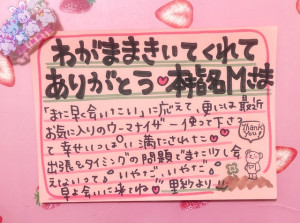 わがままきいてくれて
ありがとう♥本指名Mさま
「また早く会いたい」に応えて、更には最近
お気に入りのウーマナイザー使って下さっ
て幸せいっぱい満たされた♡
出張とタイミングの問題でまたしばらく会
えないって。いやだ。いやだ。
早よ会いに来てね♡
Thank you!